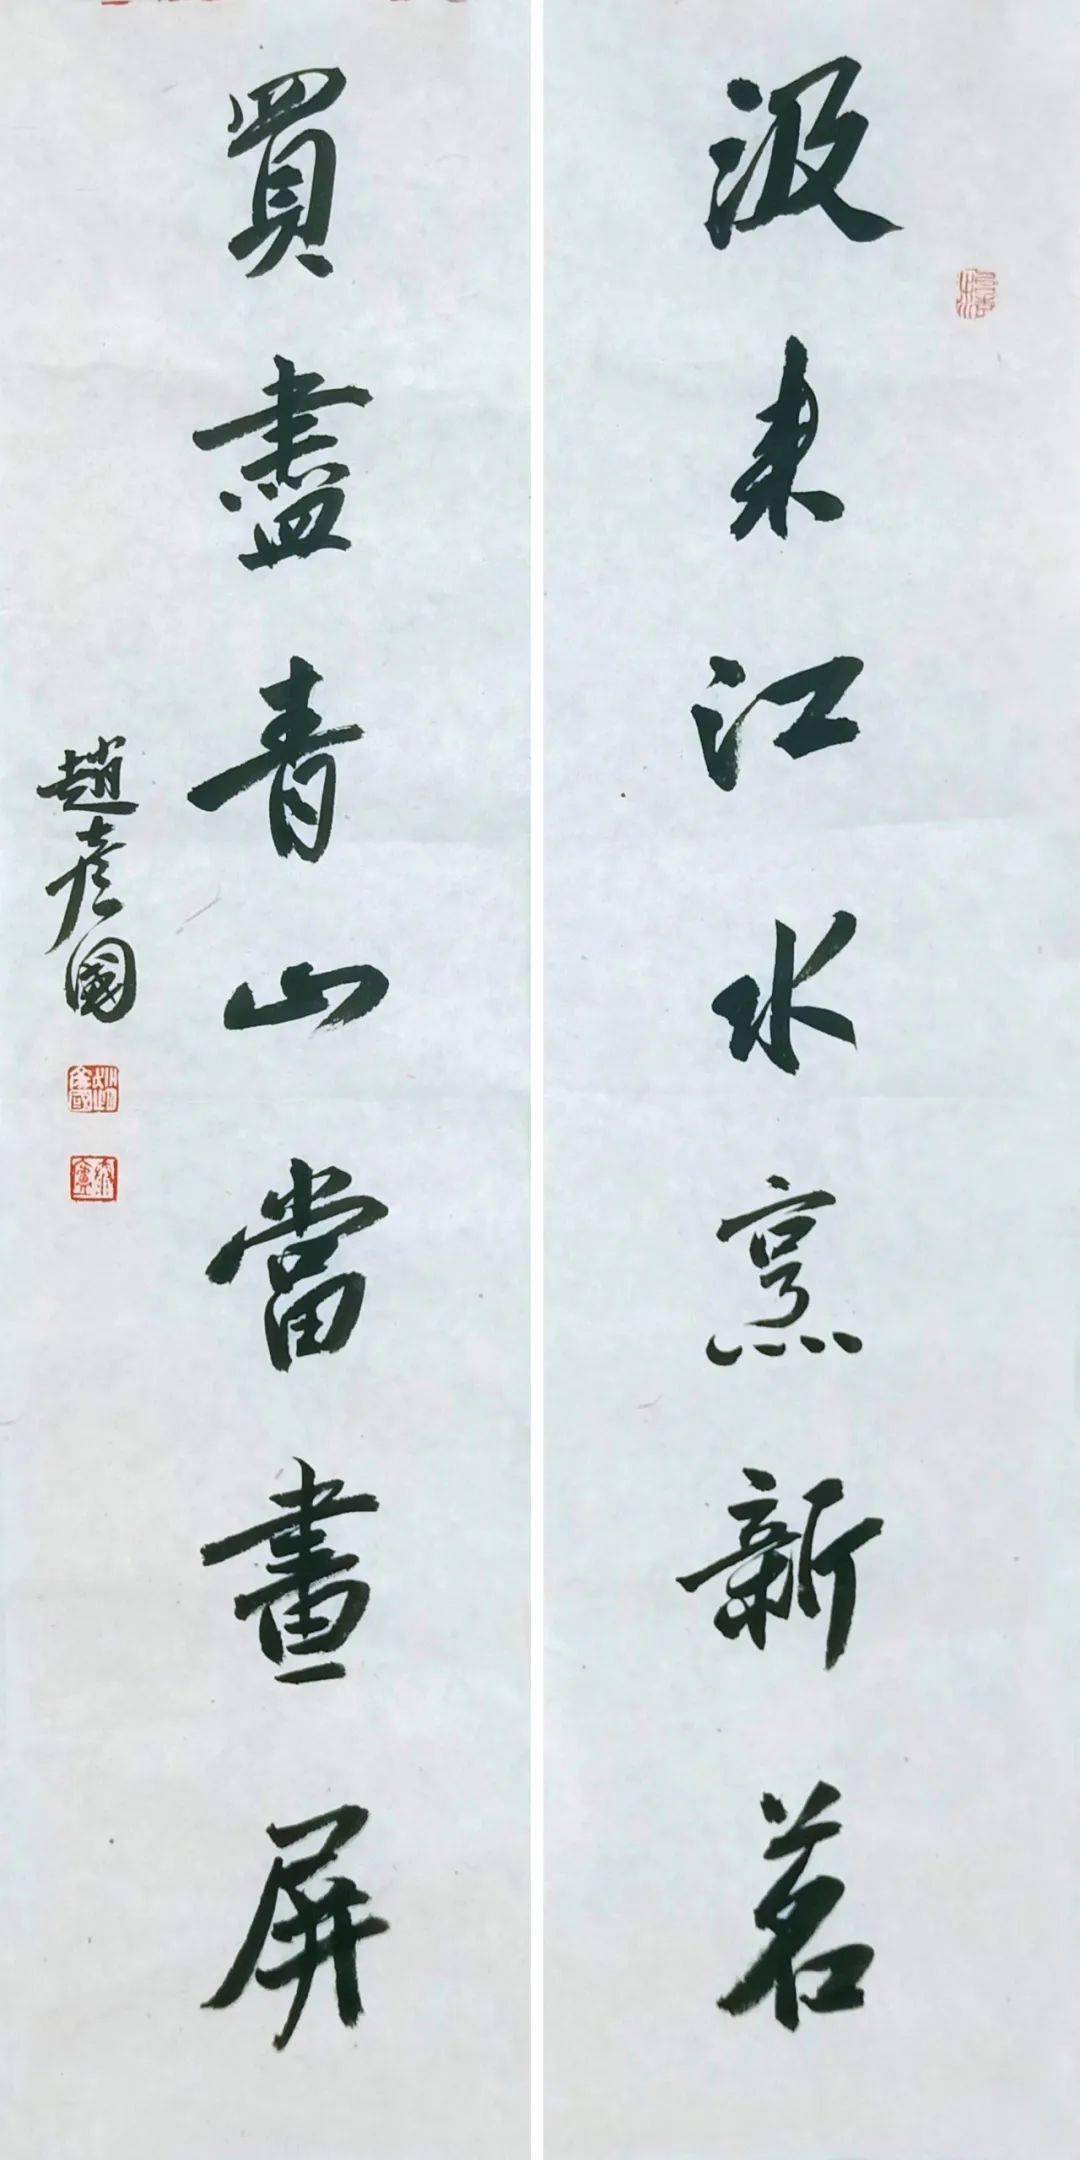 汲来江水烹新茗
買盡青山當畫屏
趙彥國